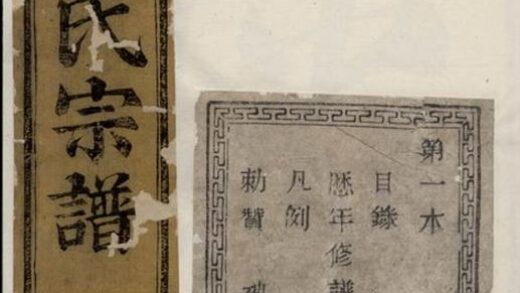 氏宗譜
第一本
目錄
厯年修譜
凡例
勅贊